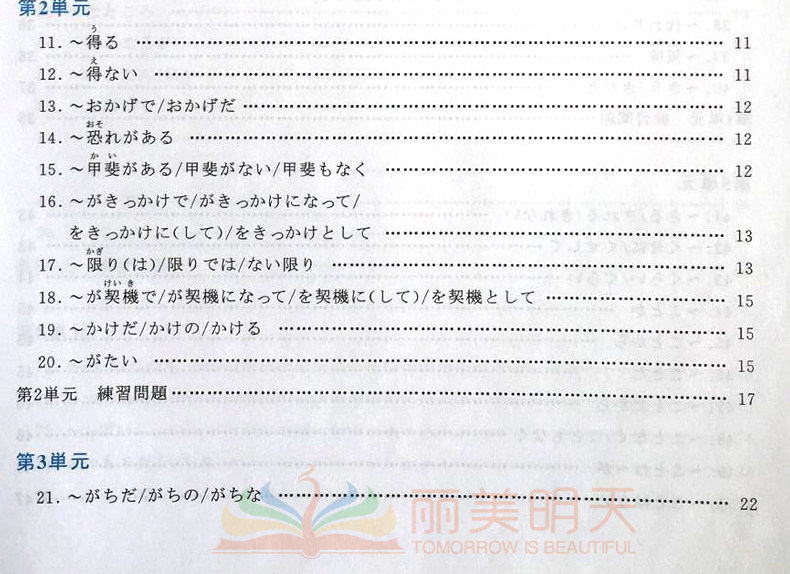 第2単元
11. ～得る …… 11
12. ～得ない …… 11
13. ～おかげで/おかげだ …… 12
14. ～恐れがある …… 12
15. ～甲斐がある/甲斐がない/甲斐もなく …… 12
16. ～がきっかけで/がきっかけになって/
をきっかけに(して)/をきっかけとして …… 13
17. ～限り(は)/限りでは/ない限り …… 13
18. ～が契機で/が契機になって/を契機に(して)/を契機として …… 15
19. ～かけだ/かけの/かける …… 15
20. ～がたい …… 15
第2単元 練習問題 …… 17
第3単元
21. ～がちだ/がちの/がちな …… 22
丽美明天
TOMORROW IS BEAUTIFUL